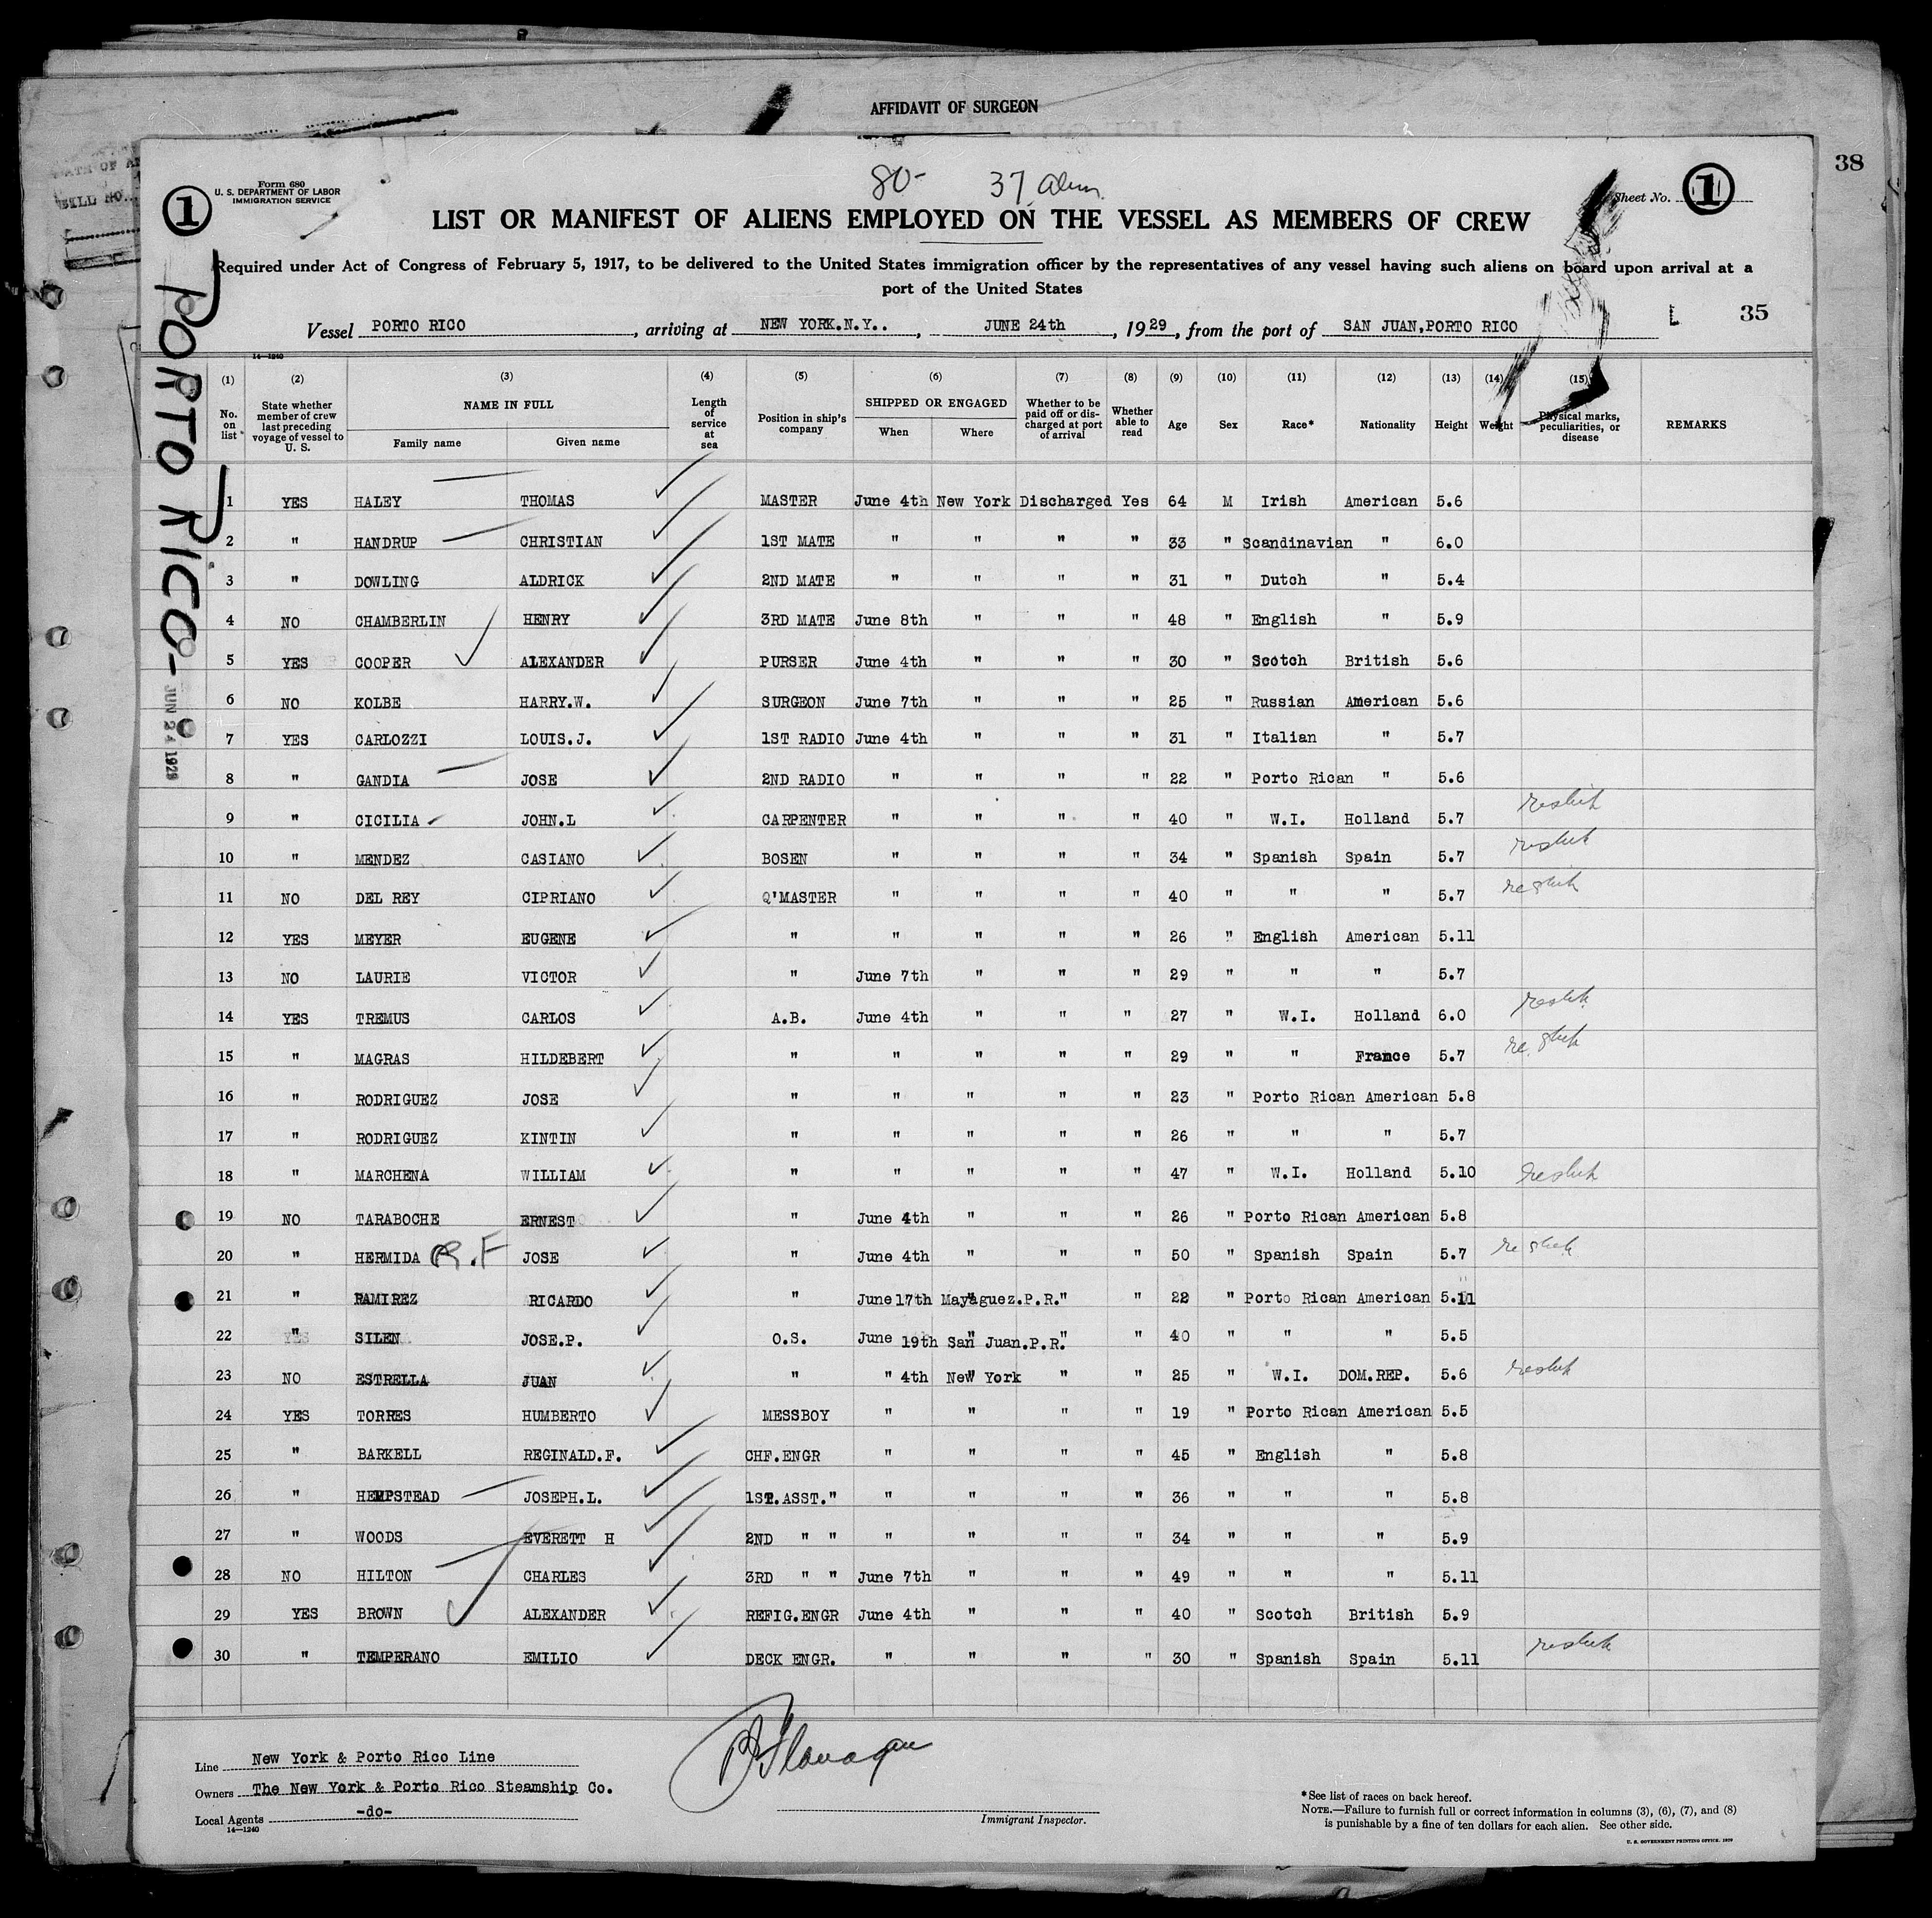 AFFIDAVIT OF SURGEON
38
Form 680
U. S. DEPARTMENT OF LABOR
IMMIGRATION SERVICE
1
80- 37 alien
Sheet No. 1
LIST OR MANIFEST OF ALIENS EMPLOYED ON THE VESSEL AS MEMBERS OF CREW
Required under Act of Congress of February 5, 1917, to be delivered to the United States immigration officer by the representatives of any vessel having such aliens on board upon arrival at a
port of the United States
L 35
Vessel PORTO RICO, arriving at NEW YORK.N.Y.., JUNE 24th, 1929, from the port of SAN JUAN,PORTO RICO
PORTO RICO-
JUN 24 1929
14—1240
(1) (2) (3) (4) (5) (6) (7) (8) (9) (10) (11) (12) (13) (14) (15)
No. on list State whether member of crew last preceding voyage of vessel to U. S. NAME IN FULL Family name Given name Length of service at sea Position in ship's company SHIPPED OR ENGAGED When Where Whether to be paid off or discharged at port of arrival Whether able to read Age Sex Race* Nationality Height Weight Physical marks, peculiarities, or disease REMARKS
1 YES HALEY THOMAS MASTER June 4th New York Discharged Yes 64 M Irish American 5.6
2 " HANDRUP CHRISTIAN 1ST MATE " " " " 33 " Scandinavian " 6.0
3 " DOWLING ALDRICK 2ND MATE " " " " 31 " Dutch " 5.4
4 NO CHAMBERLIN HENRY 3RD MATE June 8th " " " 48 " English " 5.9
5 YES COOPER ALEXANDER PURSER June 4th " " " 30 " Scotch British 5.6
6 NO KOLBE HARRY.W. SURGEON June 7th " " " 25 " Russian American 5.6
7 YES CARLOZZI LOUIS.J. 1ST RADIO June 4th " " " 31 " Italian " 5.7
8 " GANDIA JOSE 2ND RADIO " " " " 22 " Porto Rican " 5.6
9 " CICILIA JOHN.L CARPENTER " " " " 40 " W.I. Holland 5.7
10 " MENDEZ CASIANO BOSEN " " " " 34 " Spanish Spain 5.7
11 NO DEL REY CIPRIANO Q'MASTER " " " " 40 " " " 5.7
12 YES MEYER EUGENE " " " " " 26 " English American 5.11
13 NO LAURIE VICTOR " June 7th " " " 29 " " " 5.7
14 YES TREMUS CARLOS A.B. June 4th " " " 27 " W.I. Holland 6.0
15 " MAGRAS HILDEBERT " " " " " 29 " " France 5.7
16 " RODRIGUEZ JOSE " " " " " 23 " Porto Rican American 5.8
17 " RODRIGUEZ KINTIN " " " " " 26 " " " 5.7
18 " MARCHENA WILLIAM " " " " " 47 " W.I. Holland 5.10
19 NO TARABOCHE ERNEST " June 4th " " " 26 " Porto Rican American 5.8
20 " HERMIDA R.F JOSE " June 4th " " " 50 " Spanish Spain 5.7
21 " RAMIREZ RICARDO " June 17th Mayaguez.P.R. " " 22 " Porto Rican American 5.11
22 " SILEN JOSE.P. O.S. June 19th San Juan.P.R. " " 40 " " " 5.5
23 NO ESTRELLA JUAN " " 4th New York " " 25 " W.I. DOM.REP. 5.6
24 YES TORRES HUMBERTO MESSBOY " " " " 19 " Porto Rican American 5.5
25 " BARKELL REGINALD.F. CHF.ENGR " " " " 45 " English " 5.8
26 " HEMPSTEAD JOSEPH.L. 1ST.ASST." " " " " 36 " " " 5.8
27 " WOODS EVERETT H 2ND " " " " " " 34 " " " 5.9
28 NO HILTON CHARLES 3RD " " June 7th " " " 49 " " " 5.11
29 YES BROWN ALEXANDER REFIG.ENGR June 4th " " " 40 " Scotch British 5.9
30 " TEMPERANO EMILIO DECK ENGR. " " " " 30 " Spanish Spain 5.11
Line New York & Porto Rico Line
Owners The New York & Porto Rico Steamship Co.
Local Agents -do-
14—1240
Flanagan
Immigrant Inspector.
*See list of races on back hereof.
NOTE.—Failure to furnish full or correct information in columns (3), (6), (7), and (8)
is punishable by a fine of ten dollars for each alien. See other side.
U. S. GOVERNMENT PRINTING OFFICE: 1929